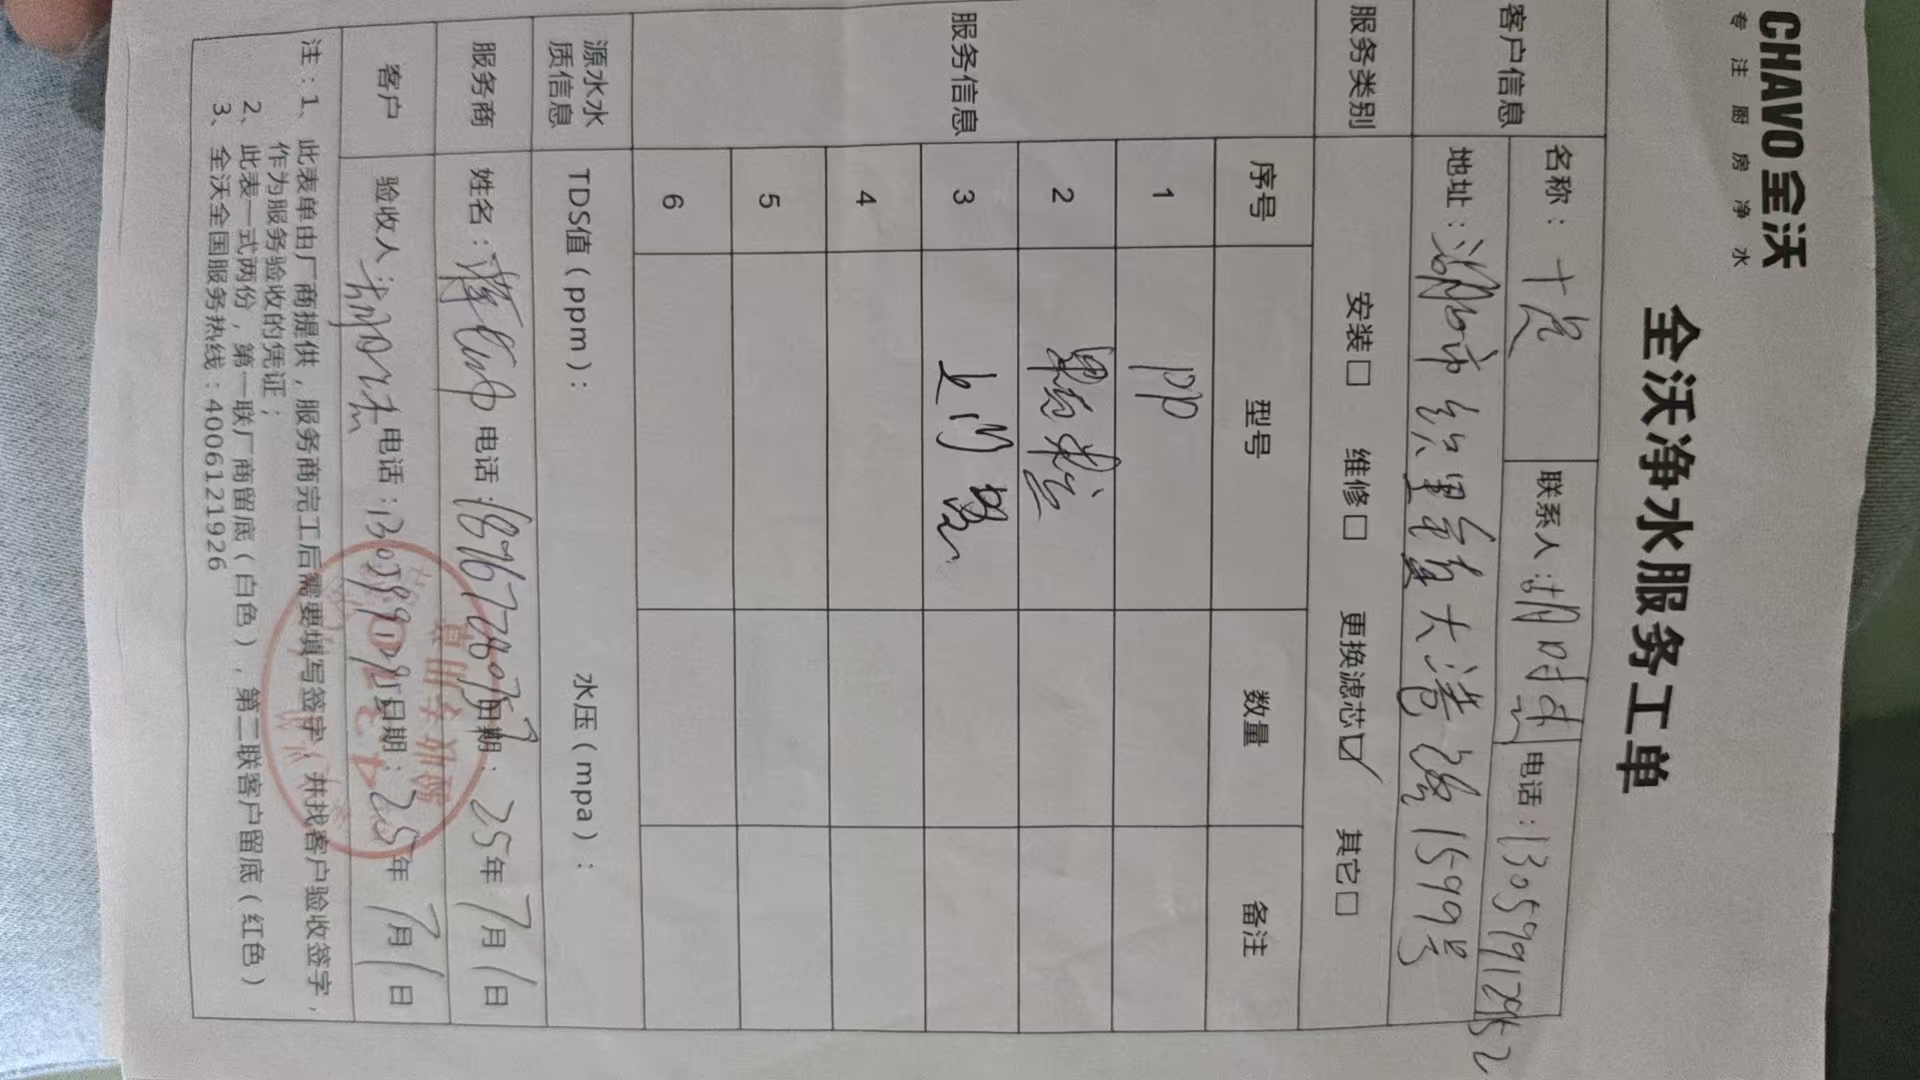 CHAVO 全沃
专注厨房净水
全沃净水服务工单
客户信息 名称： 联系人：胡 电话：
地址：湖州市织里镇大港路1599号
服务类别 安装□ 维修□ 更换滤芯☑ 其它□
服务信息 序号 型号 数量 备注
1 PP
2
3 上门
4
5
6
源水水质信息 TDS值（ppm）： 水压（mpa）：
服务商 姓名：蒋 电话： 日期：25年7月1日
客户 验收人： 电话： 日期：25年7月1日
注：1、此表单由厂商提供，服务商完工后需要填写签字，并找客户验收签字，
作为服务验收的凭证；
2、此表一式两份，第一联厂商留底（白色），第二联客户留底（红色）
3、全沃全国服务热线：4006121926